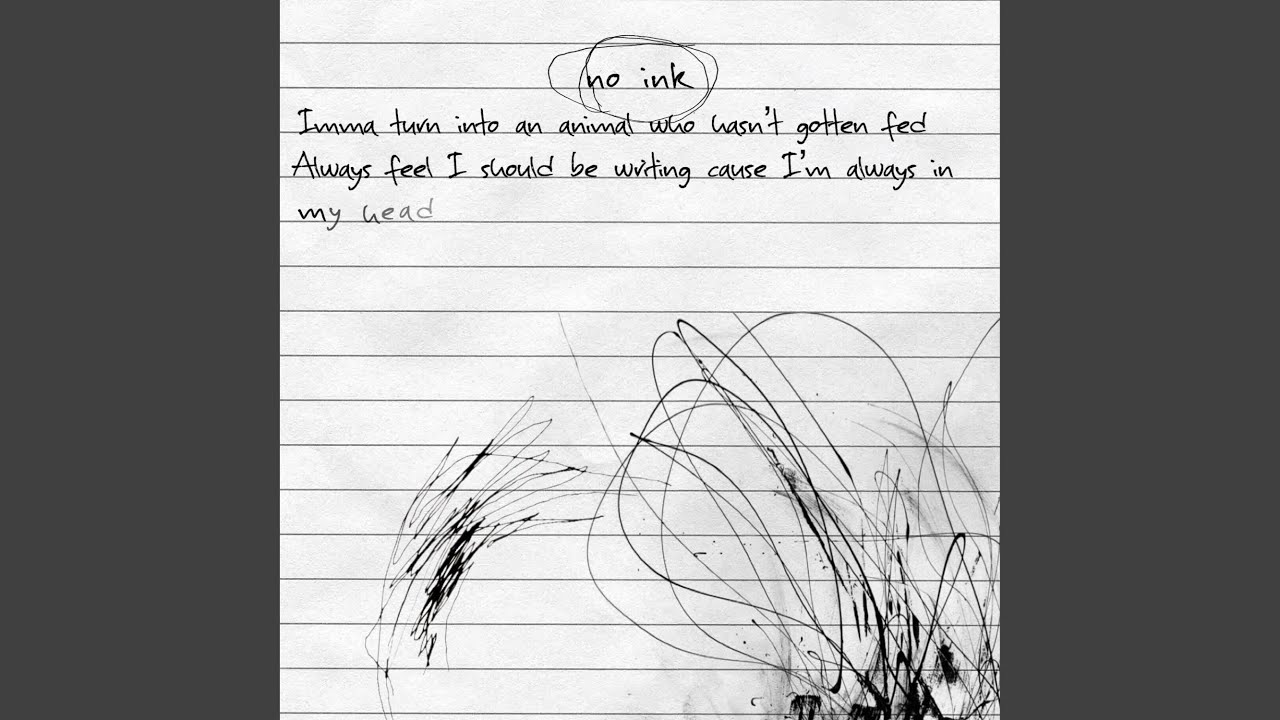 no ink
Imma turn into an animal who hasn't gotten fed
Always feel I should be writing cause I'm always in
my head